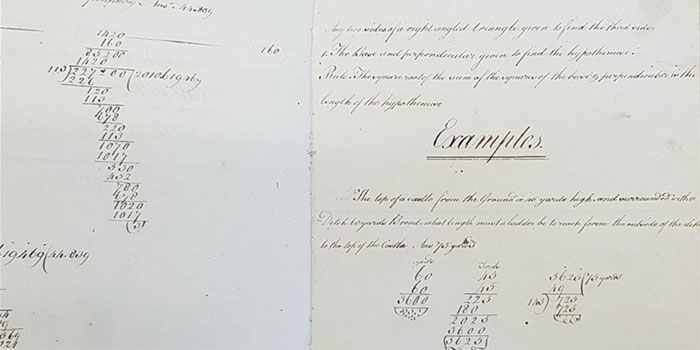 Ans. 44.839
1420
160
85200
1420
160
113)227200(2010.619469
226
120
113
700
678
220
113
1070
1017
530
452
780
678
1020
1017
(3)
619469(44.839
Any two sides of a right angled triangle given to find the third side.
1. The Base and perpendicular given to find the hypothenuse.
Rule. The square root of the sum of the squares of the base & perpendicular is the
length of the hypothenuse
Examples.
The top of a castle from the Ground is 45 yards high and surrounded with a
Ditch 60 yards Broad what length must a ladder be to reach from the outside of the ditch
to the top of the Castle Ans 75 yards
yards
60
60
3600
Yards
45
45
225
180
2025
3600
5625
5625(75 yards
49
145)725
725